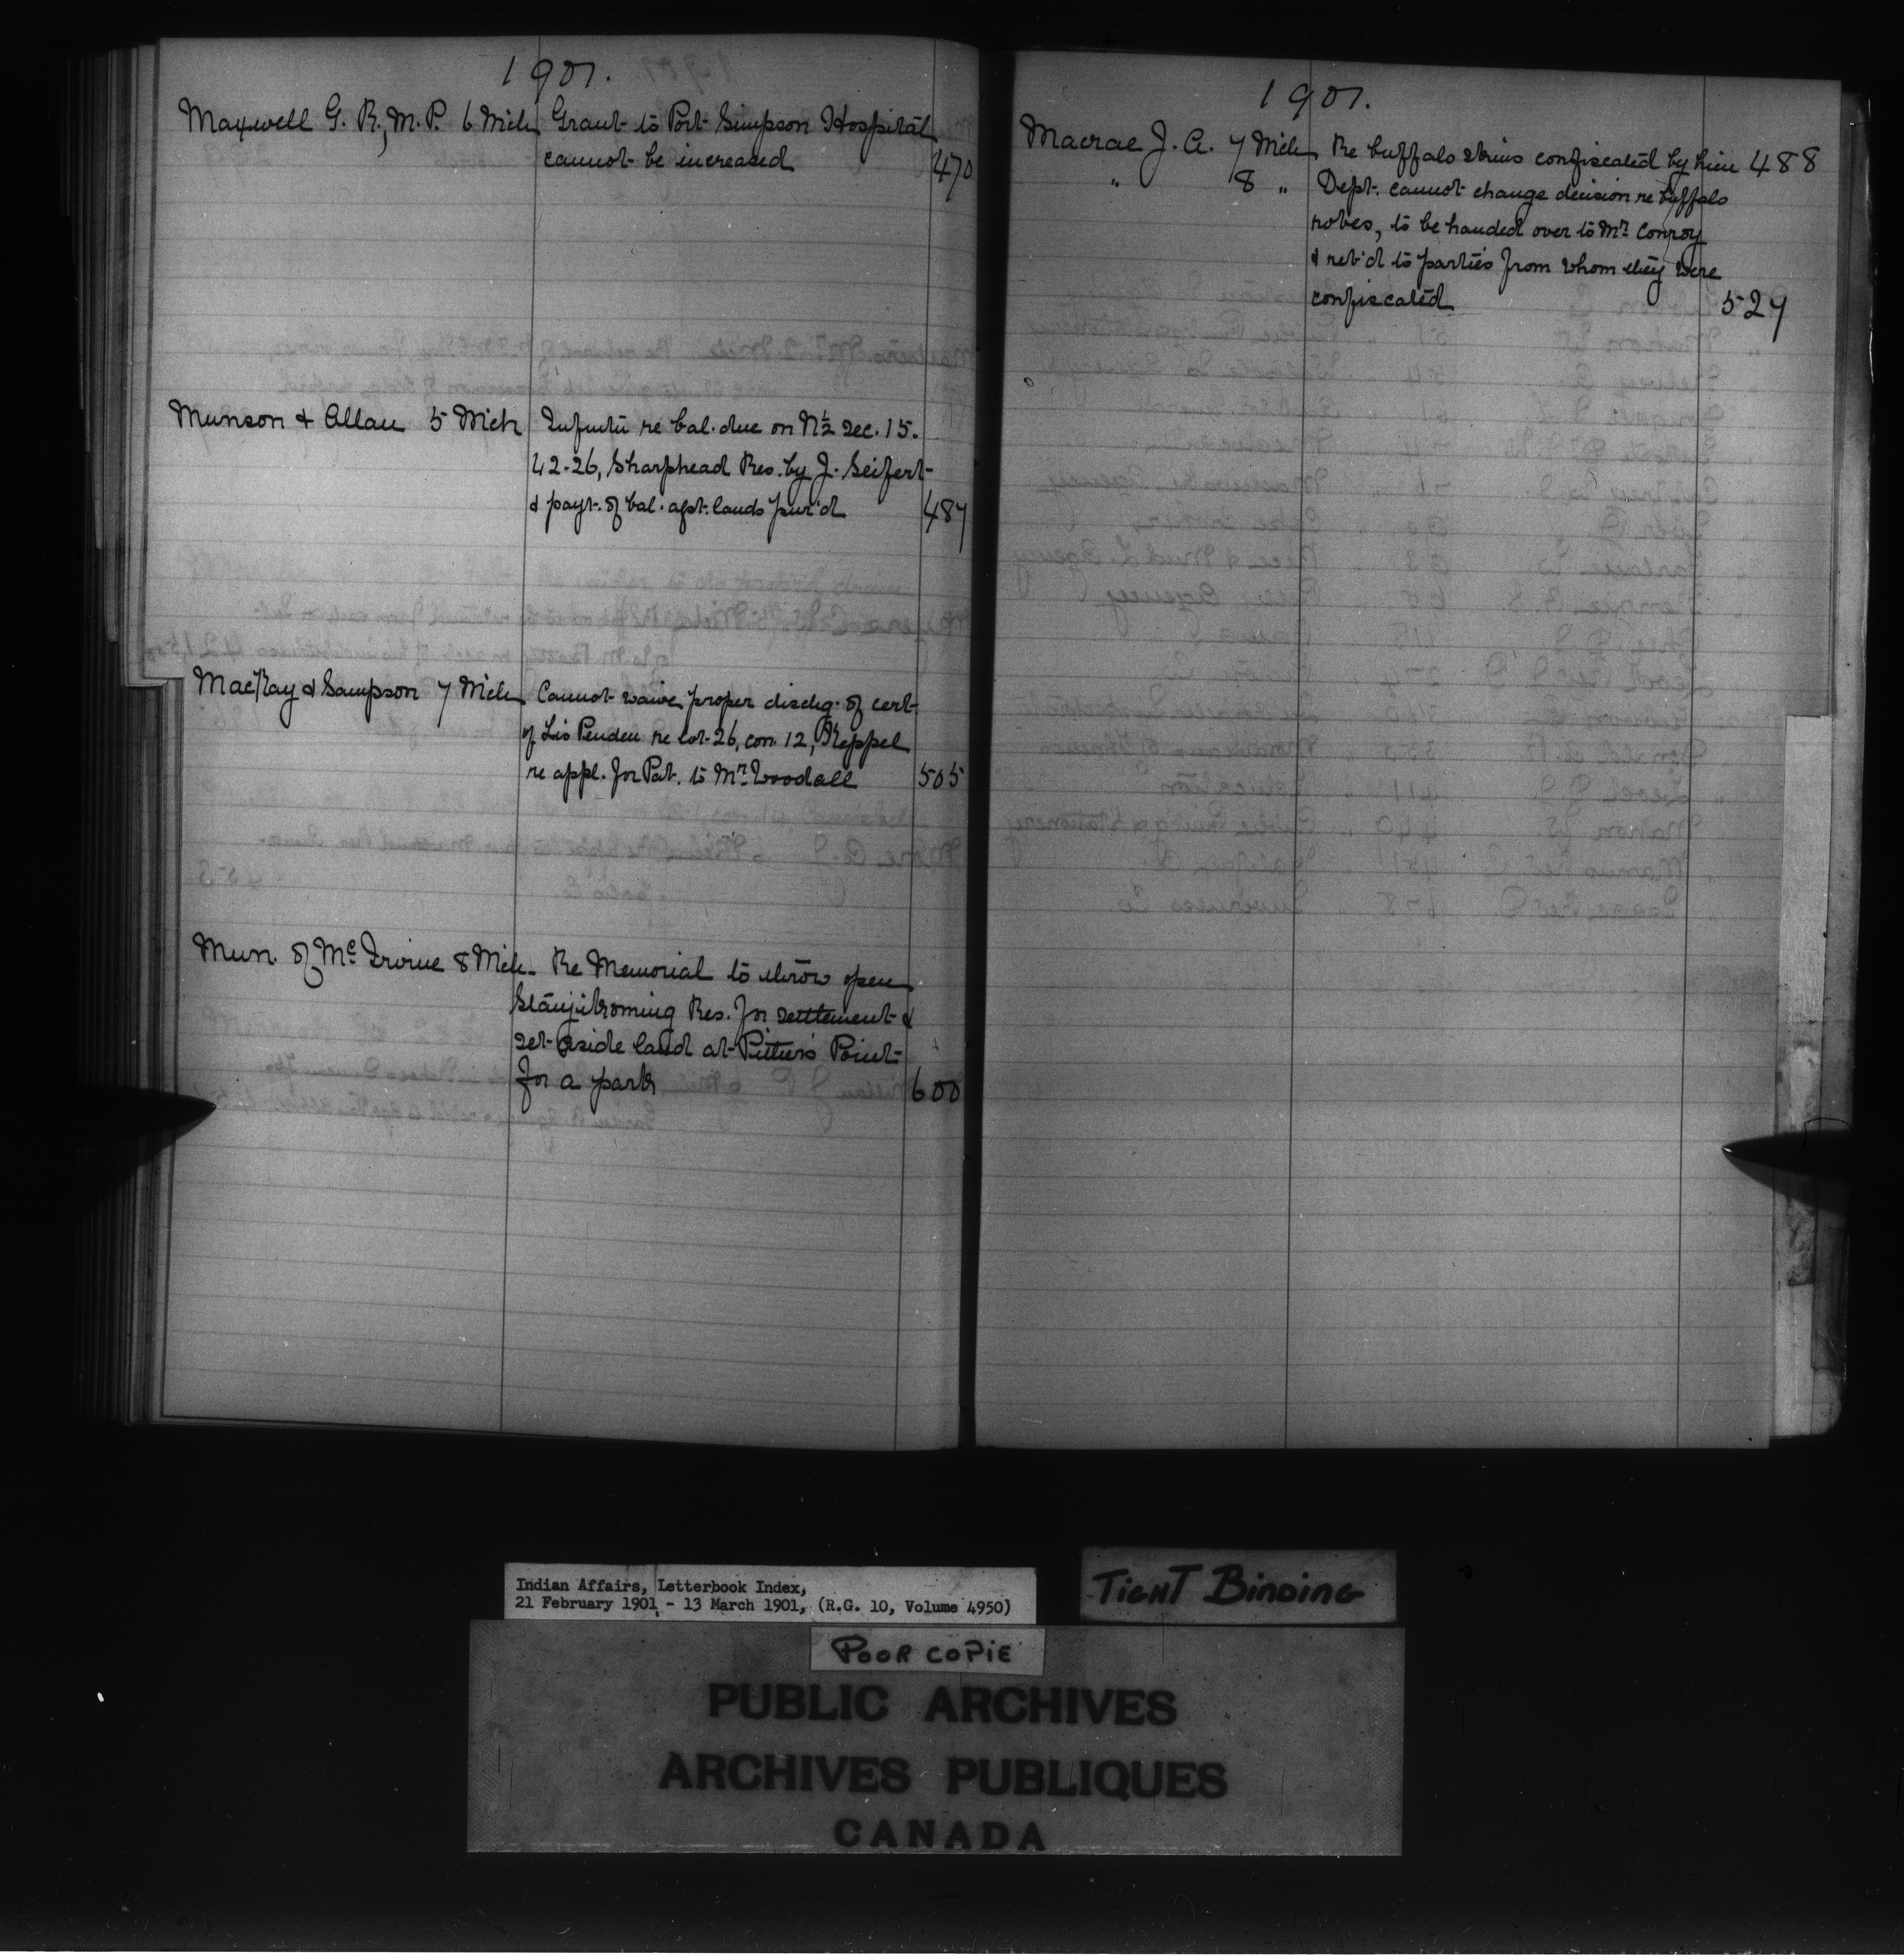 1901.
Maxwell G. R., M.P. 6 Mch Grant to Port Simpson Hospital
cannot be increased 470
Munson & Allan 5 Mch Infmtn re bal. due on N½ Sec. 15.
42-26, Sharphead Res. by J. Seifert
& payt. of bal. agst. lands pur'd 487
MacKay & Sampson 7 Mch Cannot waive proper dischg. of cert.
of Lis Penden re lot 26, con. 12, Keppel
re appl. for Pat. to Mr. Woodall 505
Mun. of McIrvine 8 Mch Re Memorial to throw open
Res. for settlement &
set aside land at Point
for a park 600
1901.
Macrae J. A. 7 Mch Re buffalo skins confiscated by him 488
" 8 " Dept. cannot change decision re buffalo
robes, to be handed over to Mr. Conroy
& ret'd to parties from whom they were
confiscated 527
Indian Affairs, Letterbook Index,
21 February 1901 - 13 March 1901, (R.G. 10, Volume 4950)
TIGHT BINDING
POOR COPIE
PUBLIC ARCHIVES
ARCHIVES PUBLIQUES
CANADA